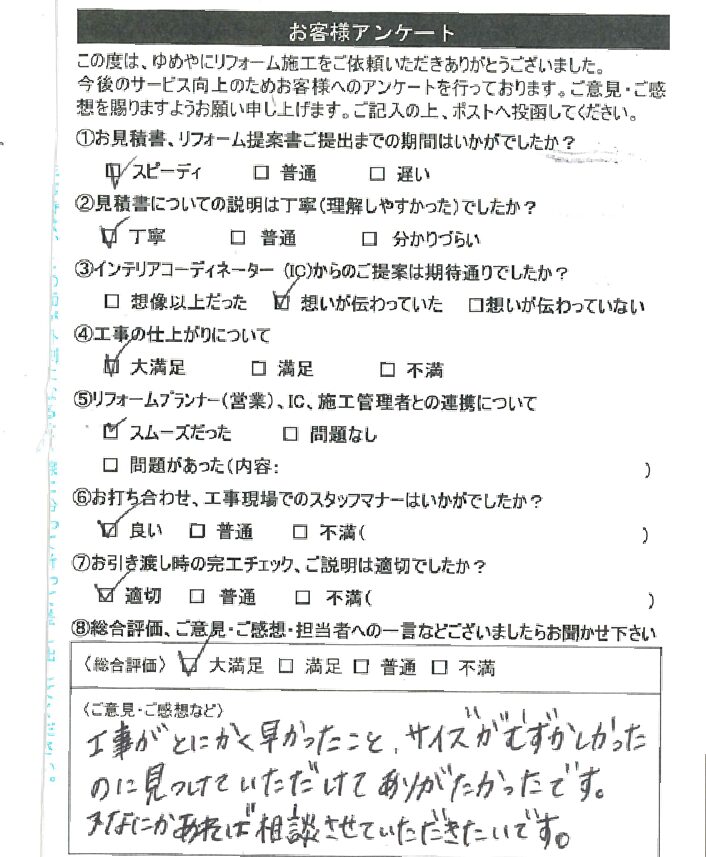 お客様アンケート
この度は、ゆめやにリフォーム施工をご依頼いただきありがとうございました。
今後のサービス向上のためお客様へのアンケートを行っております。ご意見・ご感
想を賜りますようお願い申し上げます。ご記入の上、ポストへ投函してください。
①お見積書、リフォーム提案書ご提出までの期間はいかがでしたか?
☑ スピーディ □ 普通 □ 遅い
②見積書についての説明は丁寧(理解しやすかった)でしたか?
☑ 丁寧 □ 普通 □ 分かりづらい
③インテリアコーディネーター (IC)からのご提案は期待通りでしたか?
□ 想像以上だった ☑ 想いが伝わっていた □想いが伝わっていない
④工事の仕上がりについて
☑ 大満足 □ 満足 □ 不満
⑤リフォームプランナー(営業)、IC、施工管理者との連携について
☑ スムーズだった □ 問題なし
□ 問題があった(内容: )
⑥お打ち合わせ、工事現場でのスタッフマナーはいかがでしたか?
☑ 良い □ 普通 □ 不満( )
⑦お引き渡し時の完工チェック、ご説明は適切でしたか?
☑ 適切 □ 普通 □ 不満( )
⑧総合評価、ご意見・ご感想・担当者への一言などございましたらお聞かせ下さい
〈総合評価〉 ☑ 大満足 □ 満足 □ 普通 □ 不満
〈ご意見・ご感想など〉
工事がとにかく早かったこと、サイズがむずかしかった
のに見つけていただけてありがたかったです。
またなにかあれば相談させていただきたいです。